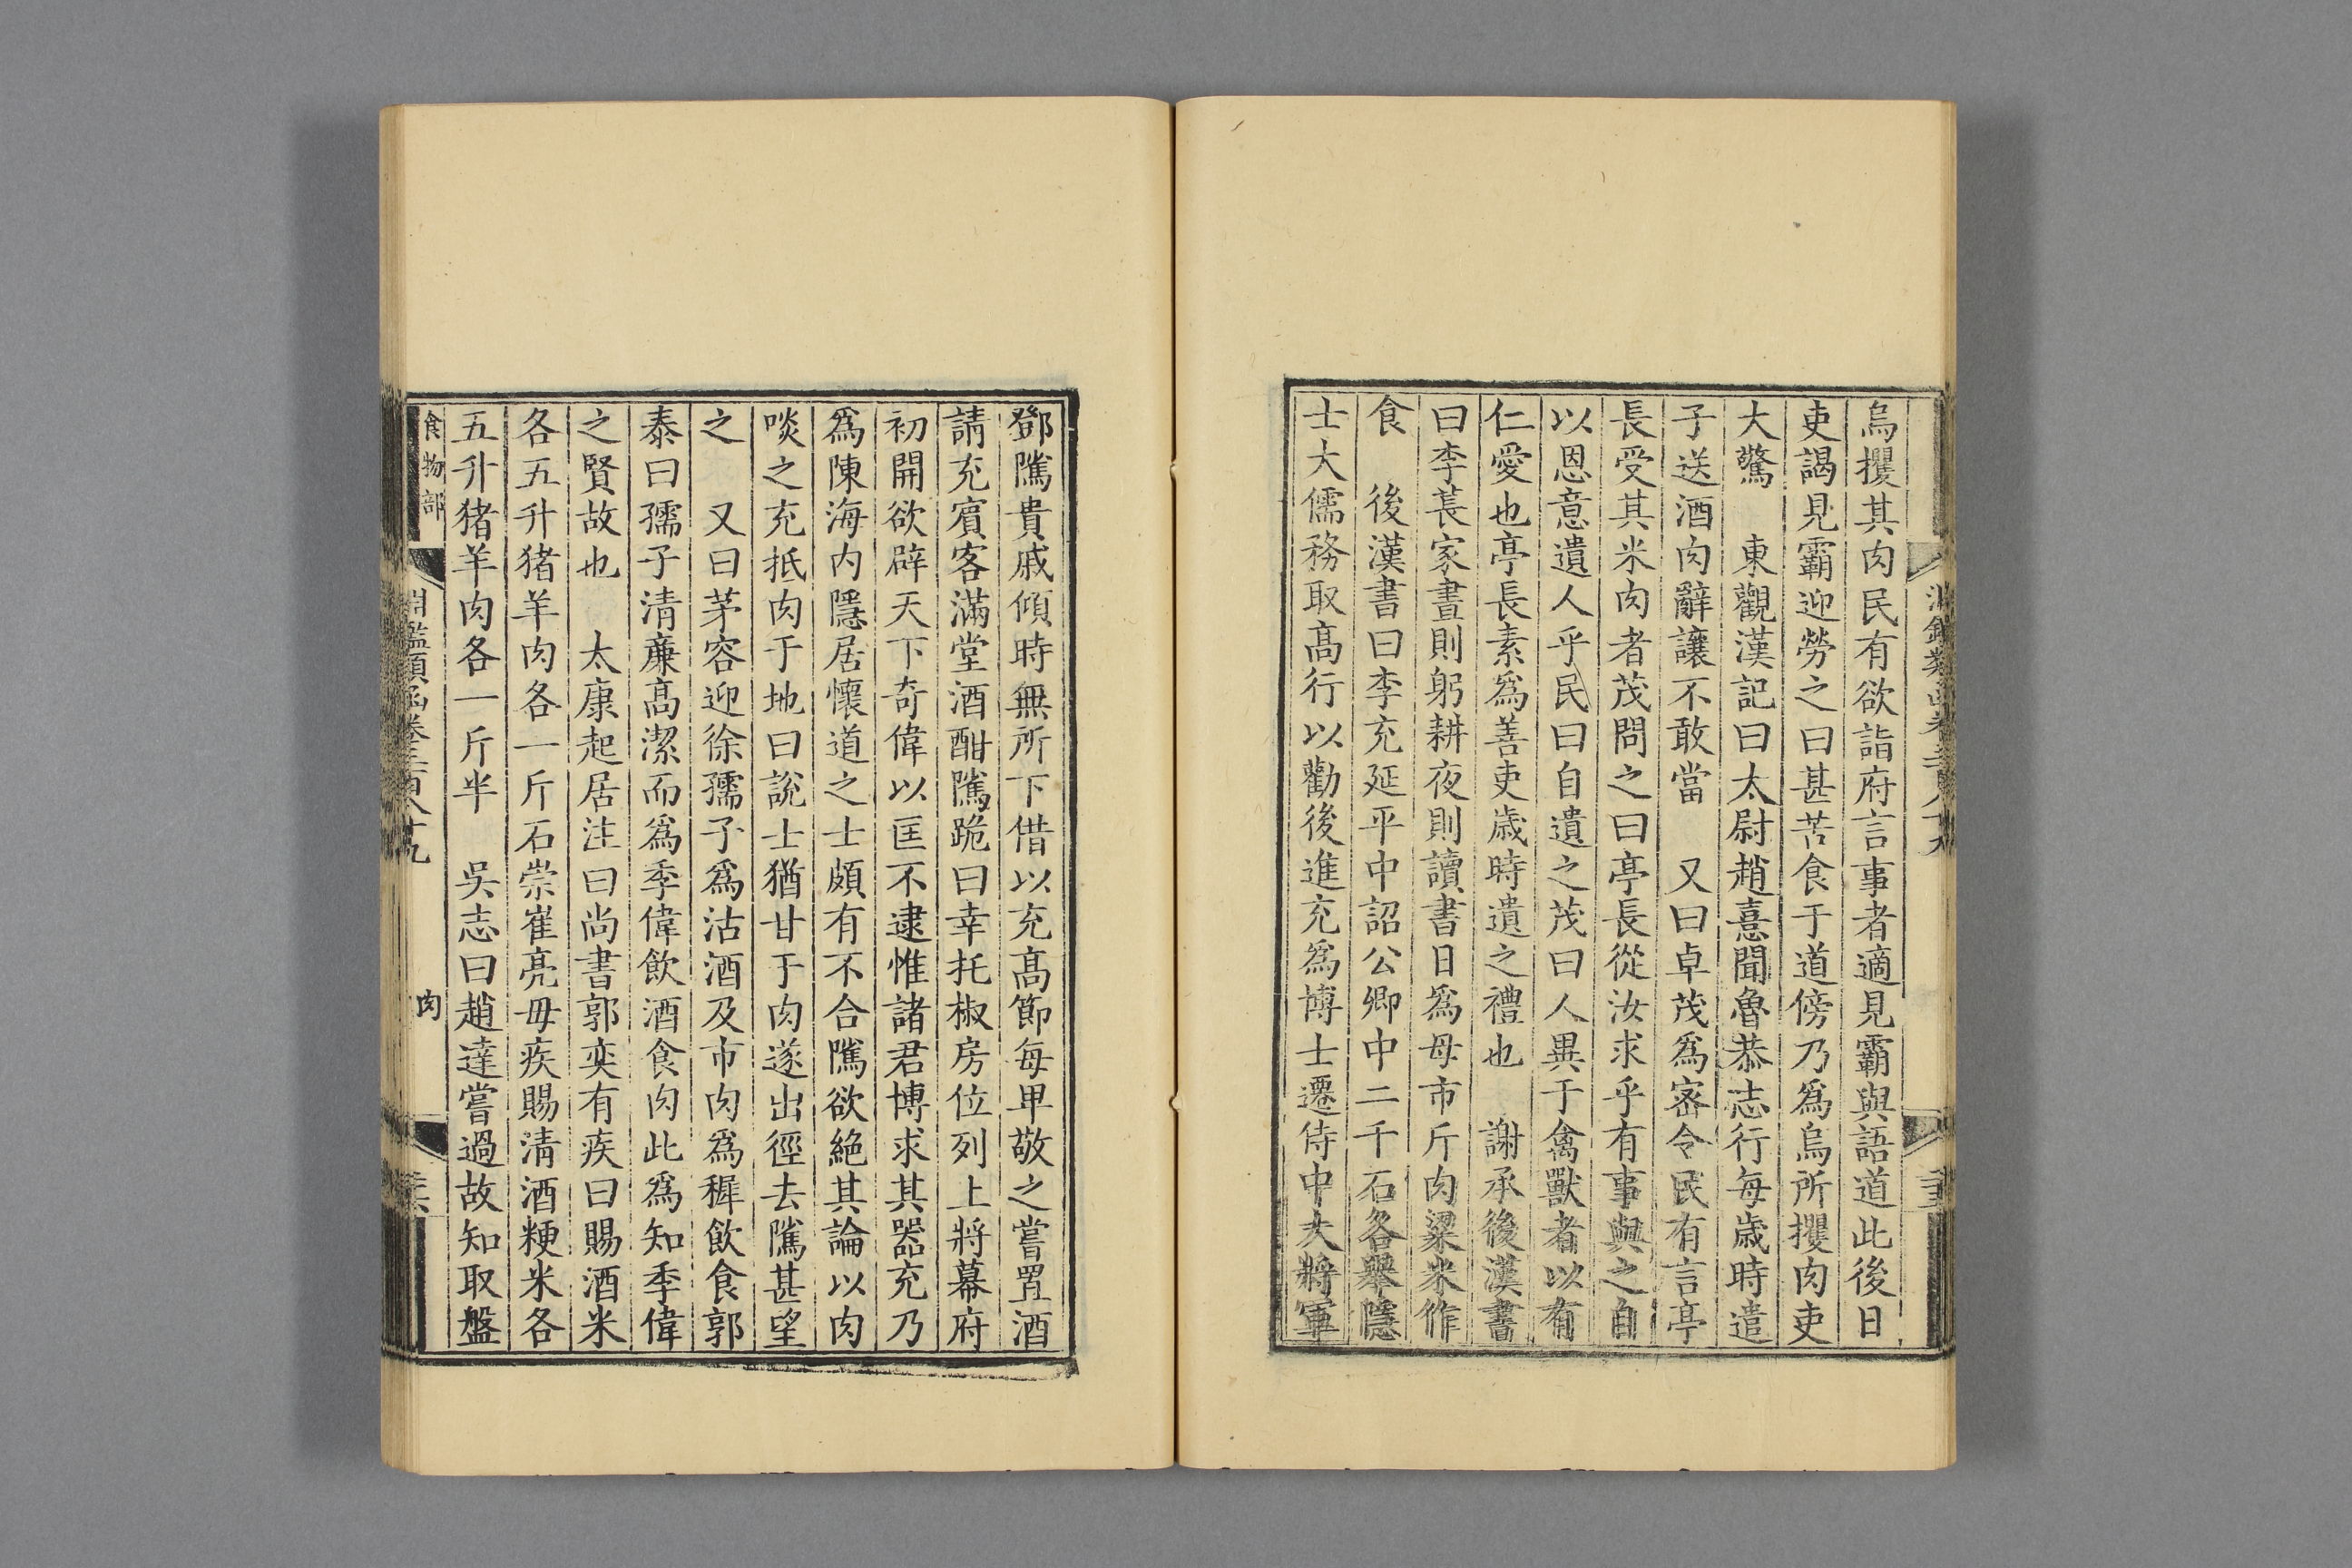 烏攫其肉民有欲詣府言事者適見霸與語道此後日
吏謁見霸迎勞之曰甚苦食于道傍乃為烏所攫肉吏
大驚　東觀漢記曰太尉趙憙聞魯恭志行每歲時遣
子送酒肉辭讓不敢當　又曰卓茂為宻令民有言亭
長受其米肉者茂問之曰亭長從汝求乎有事與之自
以恩意遺人乎民曰自遺之茂曰人異于禽獸者以有
仁愛也亭長素為善吏歲時遺之禮也　謝承後漢書
曰李萇家晝則躬耕夜則讀書日為母市斤肉粱米作
食　後漢書曰李充延平中詔公卿中二千石各舉隱
士大儒務取高行以勸後進充為博士遷侍中大將軍
鄧隲貴戚傾時無所下借以充高節每卑敬之嘗置酒
請充賔客滿堂酒酣隲跪曰幸托椒房位列上將幕府
初開欲辟天下奇偉以匡不逮惟諸君博求其器充乃
為陳海內隱居懷道之士頗有不合隲欲絕其論以肉
啖之充抵肉于地曰說士猶甘于肉遂出徑去隲甚望
之　又曰茅容迎徐孺子為沽酒及市肉為穉飲食郭
泰曰孺子清廉高潔而為季偉飲酒食肉此為知季偉
之賢故也　太康起居注曰尚書郭奕有疾曰賜酒米
各五升猪羊肉各一斤石崇崔亮毋疾賜清酒粳米各
五升猪羊肉各一斤半　吳志曰趙達嘗過故知取盤
食物部
淵鑑類函卷三百八十九
肉